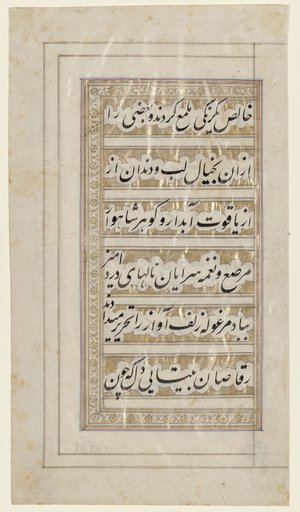 خالص یکرنکی ملمع کردند و بعضی را
ازان بخیال لب و دندان از
از یاقوت آبدار و کوهر شاهوار
مرصع و نغمه سرایان نالهای درد
بیاد مرغوله زلف آواز را تحریر میدادند
رقاصان به بیتابی دل که چون